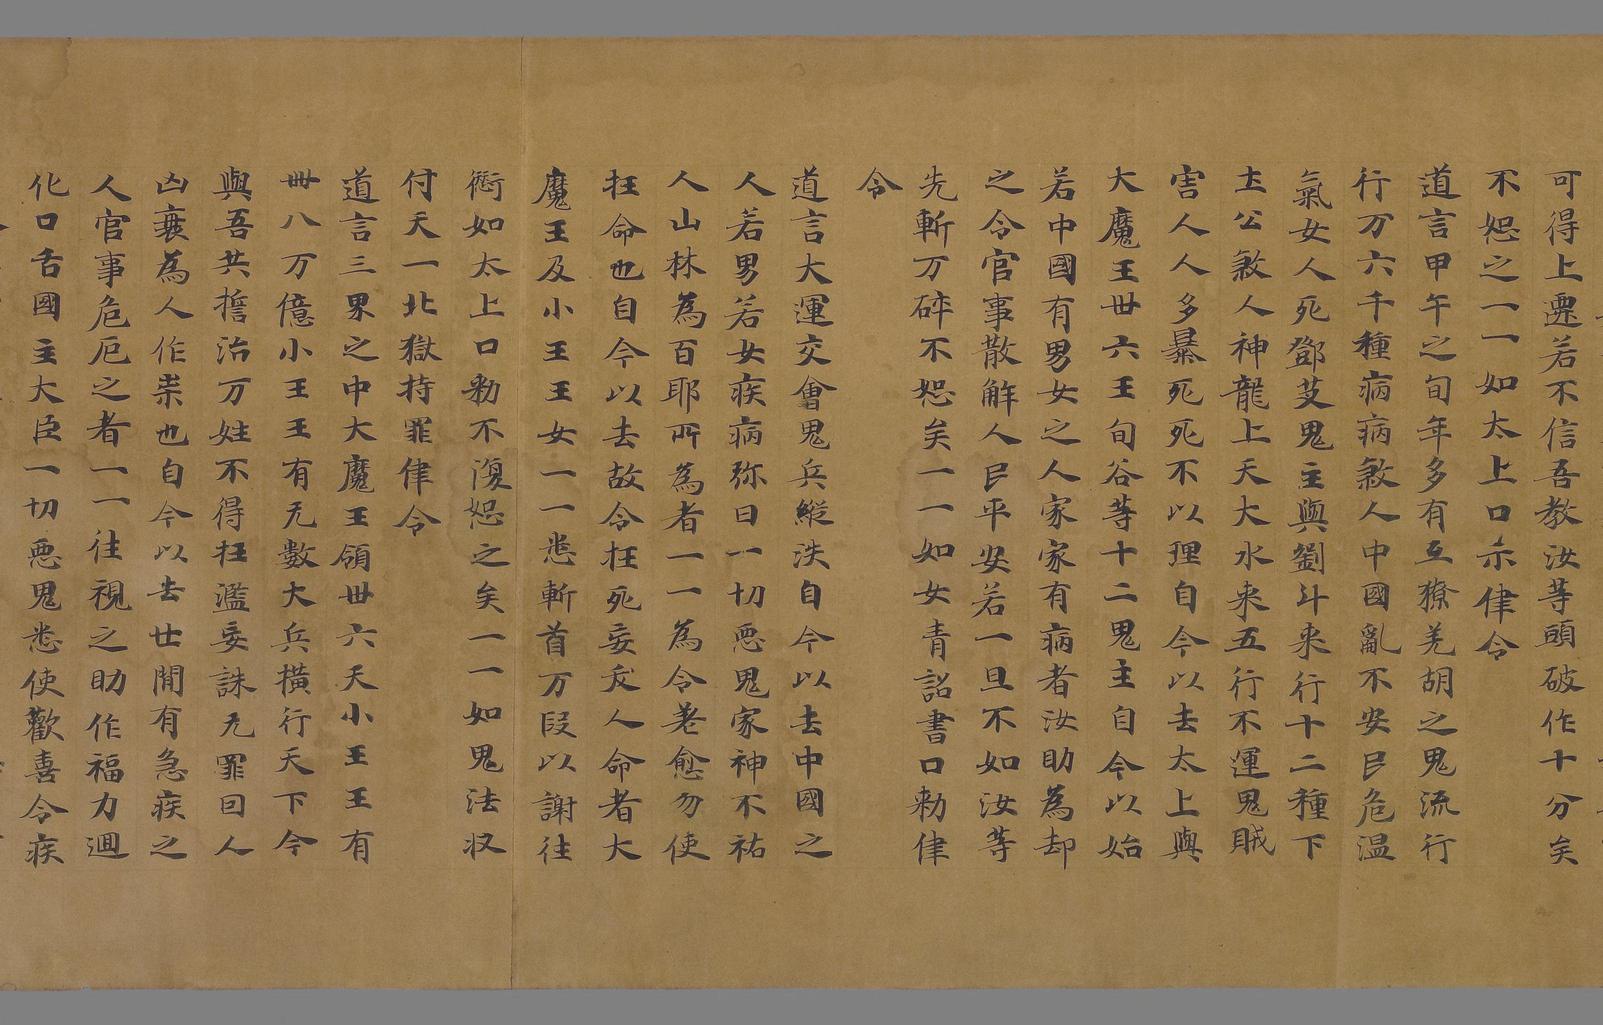 可得上遷若不信吾教汝等頭破作十分矣
不恕之一一如太上口示律令
道言甲午之旬年多有互獠羌胡之鬼流行
行万六千種病病煞人中國亂不安民危温
氣女人死鄧艾鬼主與劉斗来行十二種下
土公煞人神龍上天大水来五行不運鬼賊
害人人多暴死死不以理自今以去太上與
大魔王卅六王旬谷等十二鬼主自今以始
若中國有男女之人家家有病者汝助為却
之令官事散解人民平安若一旦不如汝等
先斬万碎不恕矣一一如女青詔書口勑律
令
道言大運交會鬼兵縱泆自今以去中國之
人若男若女疾病弥日一切惡鬼家神不祐
人山林為百耶所為者一一為令差愈勿使
枉命也自今以去故令枉死妄煞人命者大
魔王及小王王女一一悉斬首万段以謝往
愆如太上口勑不復恕之矣一一如鬼法収
付天一北獄持罪律令
道言三界之中大魔王領卅六天小王王有
卌八万億小王王有无數大兵橫行天下今
與吾共擔治万姓不得枉濫妄誅无罪曰人
凶衰為人作祟也自今以去世間有急疾之
人官事危厄之者一一往視之助作福力迴
化口舌國主大臣一切惡鬼悉使歡喜令疾